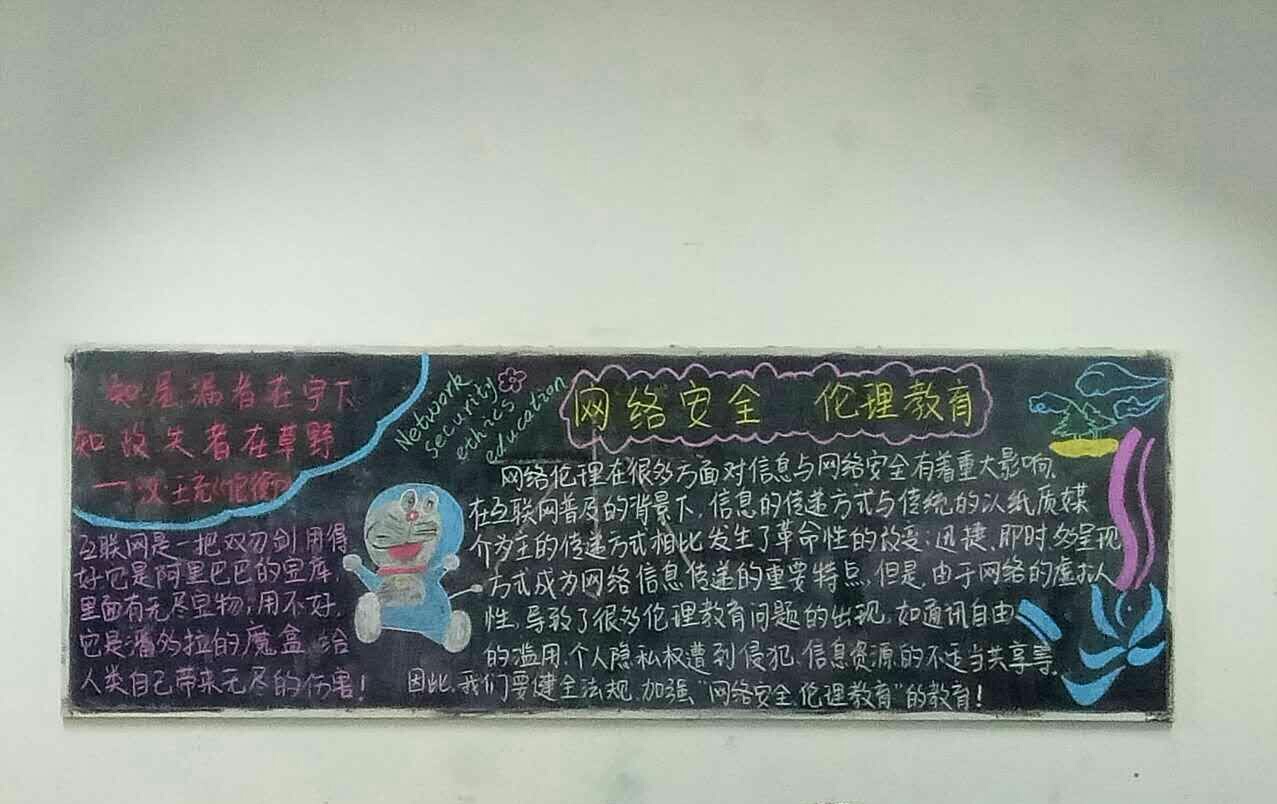 知屋漏者在宇下
知政失者在草野
——汉·王充《论衡》
互联网是一把双刃剑,用得
好它是阿里巴巴的宝库,
里面有无尽宝物;用不好,
它是潘多拉的魔盒,给
人类自己带来无尽的伤害!
Network
security
ethics
education
网络安全 伦理教育
网络伦理在很多方面对信息与网络安全有着重大影响,
在互联网普及的背景下,信息的传递方式与传统的以纸质媒
介为主的传递方式相比发生了革命性的改变:迅捷、即时、多呈现
方式成为网络信息传递的重要特点。但是,由于网络的虚拟
性,导致了很多伦理教育问题的出现,如通讯自由
的滥用,个人隐私权遭到侵犯,信息资源的不适当共享等。
因此,我们要健全法规,加强“网络安全,伦理教育”的教育!